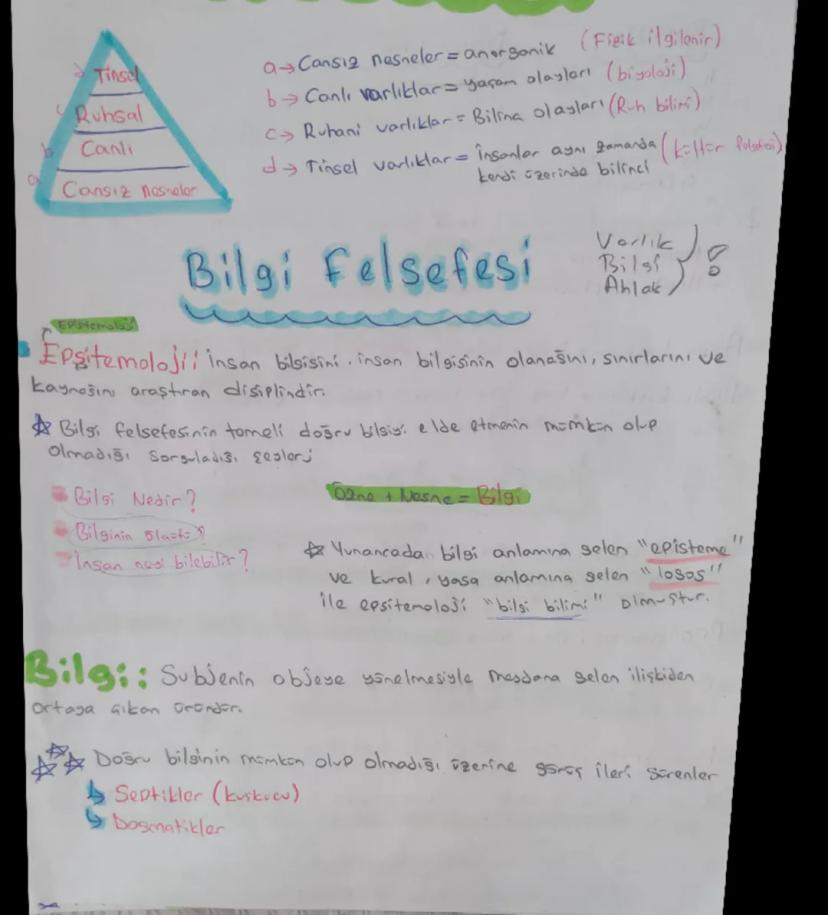 d Tinsel
c Ruhsal
b Canlı
a Cansız nesneler
a → Cansız nesneler = anorganik (Fizik ilgilenir)
b → Canlı varlıklar = yaşam olayları (biyoloji)
c → Ruhani varlıklar = Bilinç olayları (Ruh bilimi)
d → Tinsel varlıklar = insanlar aynı zamanda (kültür felsefesi)
kendi üzerinde bilinci
Bilgi Felsefesi
Varlık
Bilgi
Ahlak
Epistemoloji
Epsitemoloji: insan bilgisini. insan bilgisinin olanağını, sınırlarını ve
kaynağını araştıran disiplindir.
Bilgi felsefesinin temeli doğru bilgiyi elde etmenin mümkün olup
olmadığı sorguladığı şeyler;
Bilgi Nedir?
Özne + Nesne = Bilgi
Bilginin
İnsan neyi bilebilir?
Yunancadan bilgi anlamına gelen "episteme"
ve kural, yasa anlamına gelen "logos"
ile epsitemoloji "bilgi bilimi" olmuştur.
Bilgi: Subjenin objeye yönelmesiyle meydana gelen ilişkiden
ortaya çıkan üründür.
Doğru bilginin mümkün olup olmadığı üzerine görüş ileri sürenler
Septikler (kuşkucu)
Dogmatikler